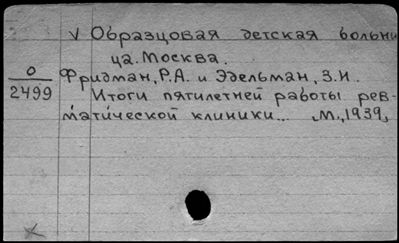 V Образцовая детская больни
ца. Москва.
О
2499
Фридман, Р.А. и Эдельман, З.И.
Итоги пятилетней работы рев-
матической клиники... М., 1939,